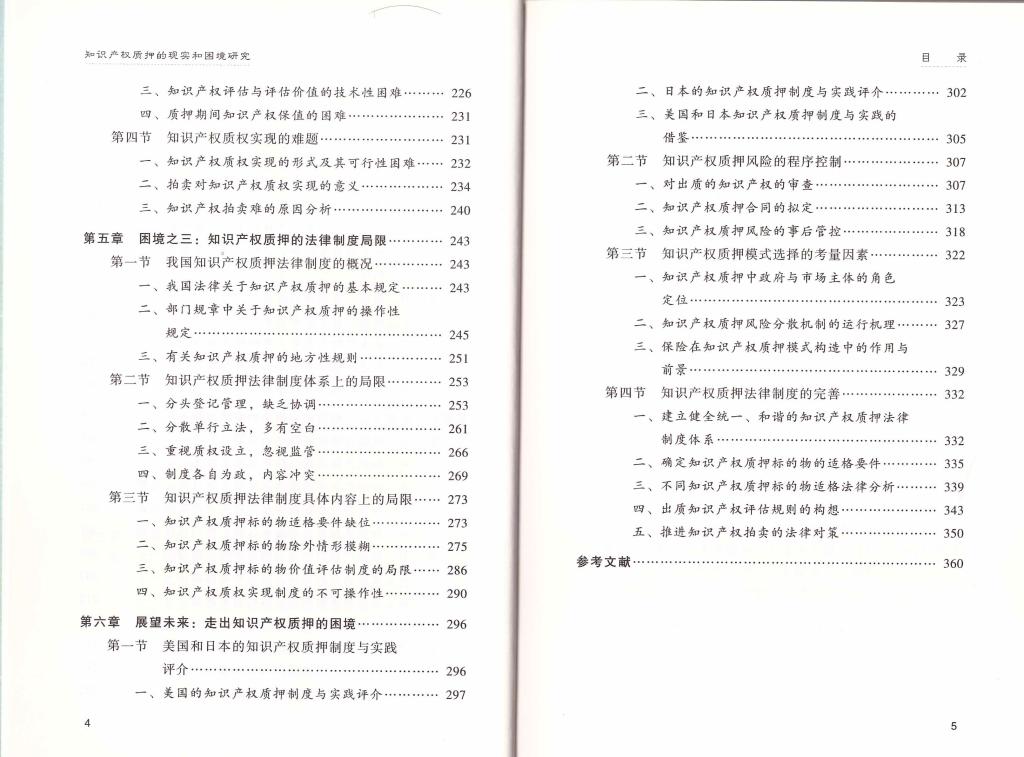 知识产权质押的现实和困境研究
三、知识产权评估与评估价值的技术性困难……… 226
四、质押期间知识产权保值的困难…………………… 231
第四节 知识产权质权实现的难题…………………… 231
一、知识产权质权实现的形式及其可行性困难…… 232
二、拍卖对知识产权质权实现的意义……………… 234
三、知识产权拍卖难的原因分析…………………… 240
第五章 困境之三：知识产权质押的法律制度局限………… 243
第一节 我国知识产权质押法律制度的概况………… 243
一、我国法律关于知识产权质押的基本规定……… 243
二、部门规章中关于知识产权质押的操作性
规定…………………………………………… 245
三、有关知识产权质押的地方性规则……………… 251
第二节 知识产权质押法律制度体系上的局限………… 253
一、分头登记管理，缺乏协调……………………… 253
二、分散单行立法，多有空白……………………… 261
三、重视质权设立，忽视监管……………………… 266
四、制度各自为政，内容冲突……………………… 269
第三节 知识产权质押法律制度具体内容上的局限…… 273
一、知识产权质押标的物适格要件缺位…………… 273
二、知识产权质押标的物除外情形模糊…………… 275
三、知识产权质押标的物价值评估制度的局限…… 286
四、知识产权质权实现制度的不可操作性………… 290
第六章 展望未来：走出知识产权质押的困境……………… 296
第一节 美国和日本的知识产权质押制度与实践
评介…………………………………………… 296
一、美国的知识产权质押制度与实践评介………… 297
4
目 录
二、日本的知识产权质押制度与实践评介………… 302
三、美国和日本知识产权质押制度与实践的
借鉴…………………………………………… 305
第二节 知识产权质押风险的程序控制……………… 307
一、对出质的知识产权的审查……………………… 307
二、知识产权质押合同的拟定……………………… 313
三、知识产权质押风险的事后管控………………… 318
第三节 知识产权质押模式选择的考量因素………… 322
一、知识产权质押中政府与市场主体的角色
定位…………………………………………… 323
二、知识产权质押风险分散机制的运行机理……… 327
三、保险在知识产权质押模式构造中的作用与
前景…………………………………………… 329
第四节 知识产权质押法律制度的完善……………… 332
一、建立健全统一、和谐的知识产权质押法律
制度体系……………………………………… 332
二、确定知识产权质押标的物的适格要件………… 335
三、不同知识产权质押标的物适格法律分析……… 339
四、出质知识产权评估规则的构想………………… 343
五、推进知识产权拍卖的法律对策………………… 350
参考文献…………………………………………………… 360
5